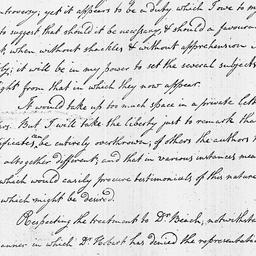 troversy, yet it appears to be a duty which I owe to my
to suggest that should it be necessary, & should a favoura
k when without shackles & without apprehension
ly; it will be in my power to set the several subjects
ight from that in which they now appear.
It would take up too much space in a private lett
rs. But I will take the liberty just to remark tha
ificates, can be entirely overthrown, of others the authors
altogether different; and that in various instances mea
which would easily procure testimonials of this nature
which might be desired.
Respecting the treatment to Dr. Beach, notwithsta
anner in which Dr. has denied the representati